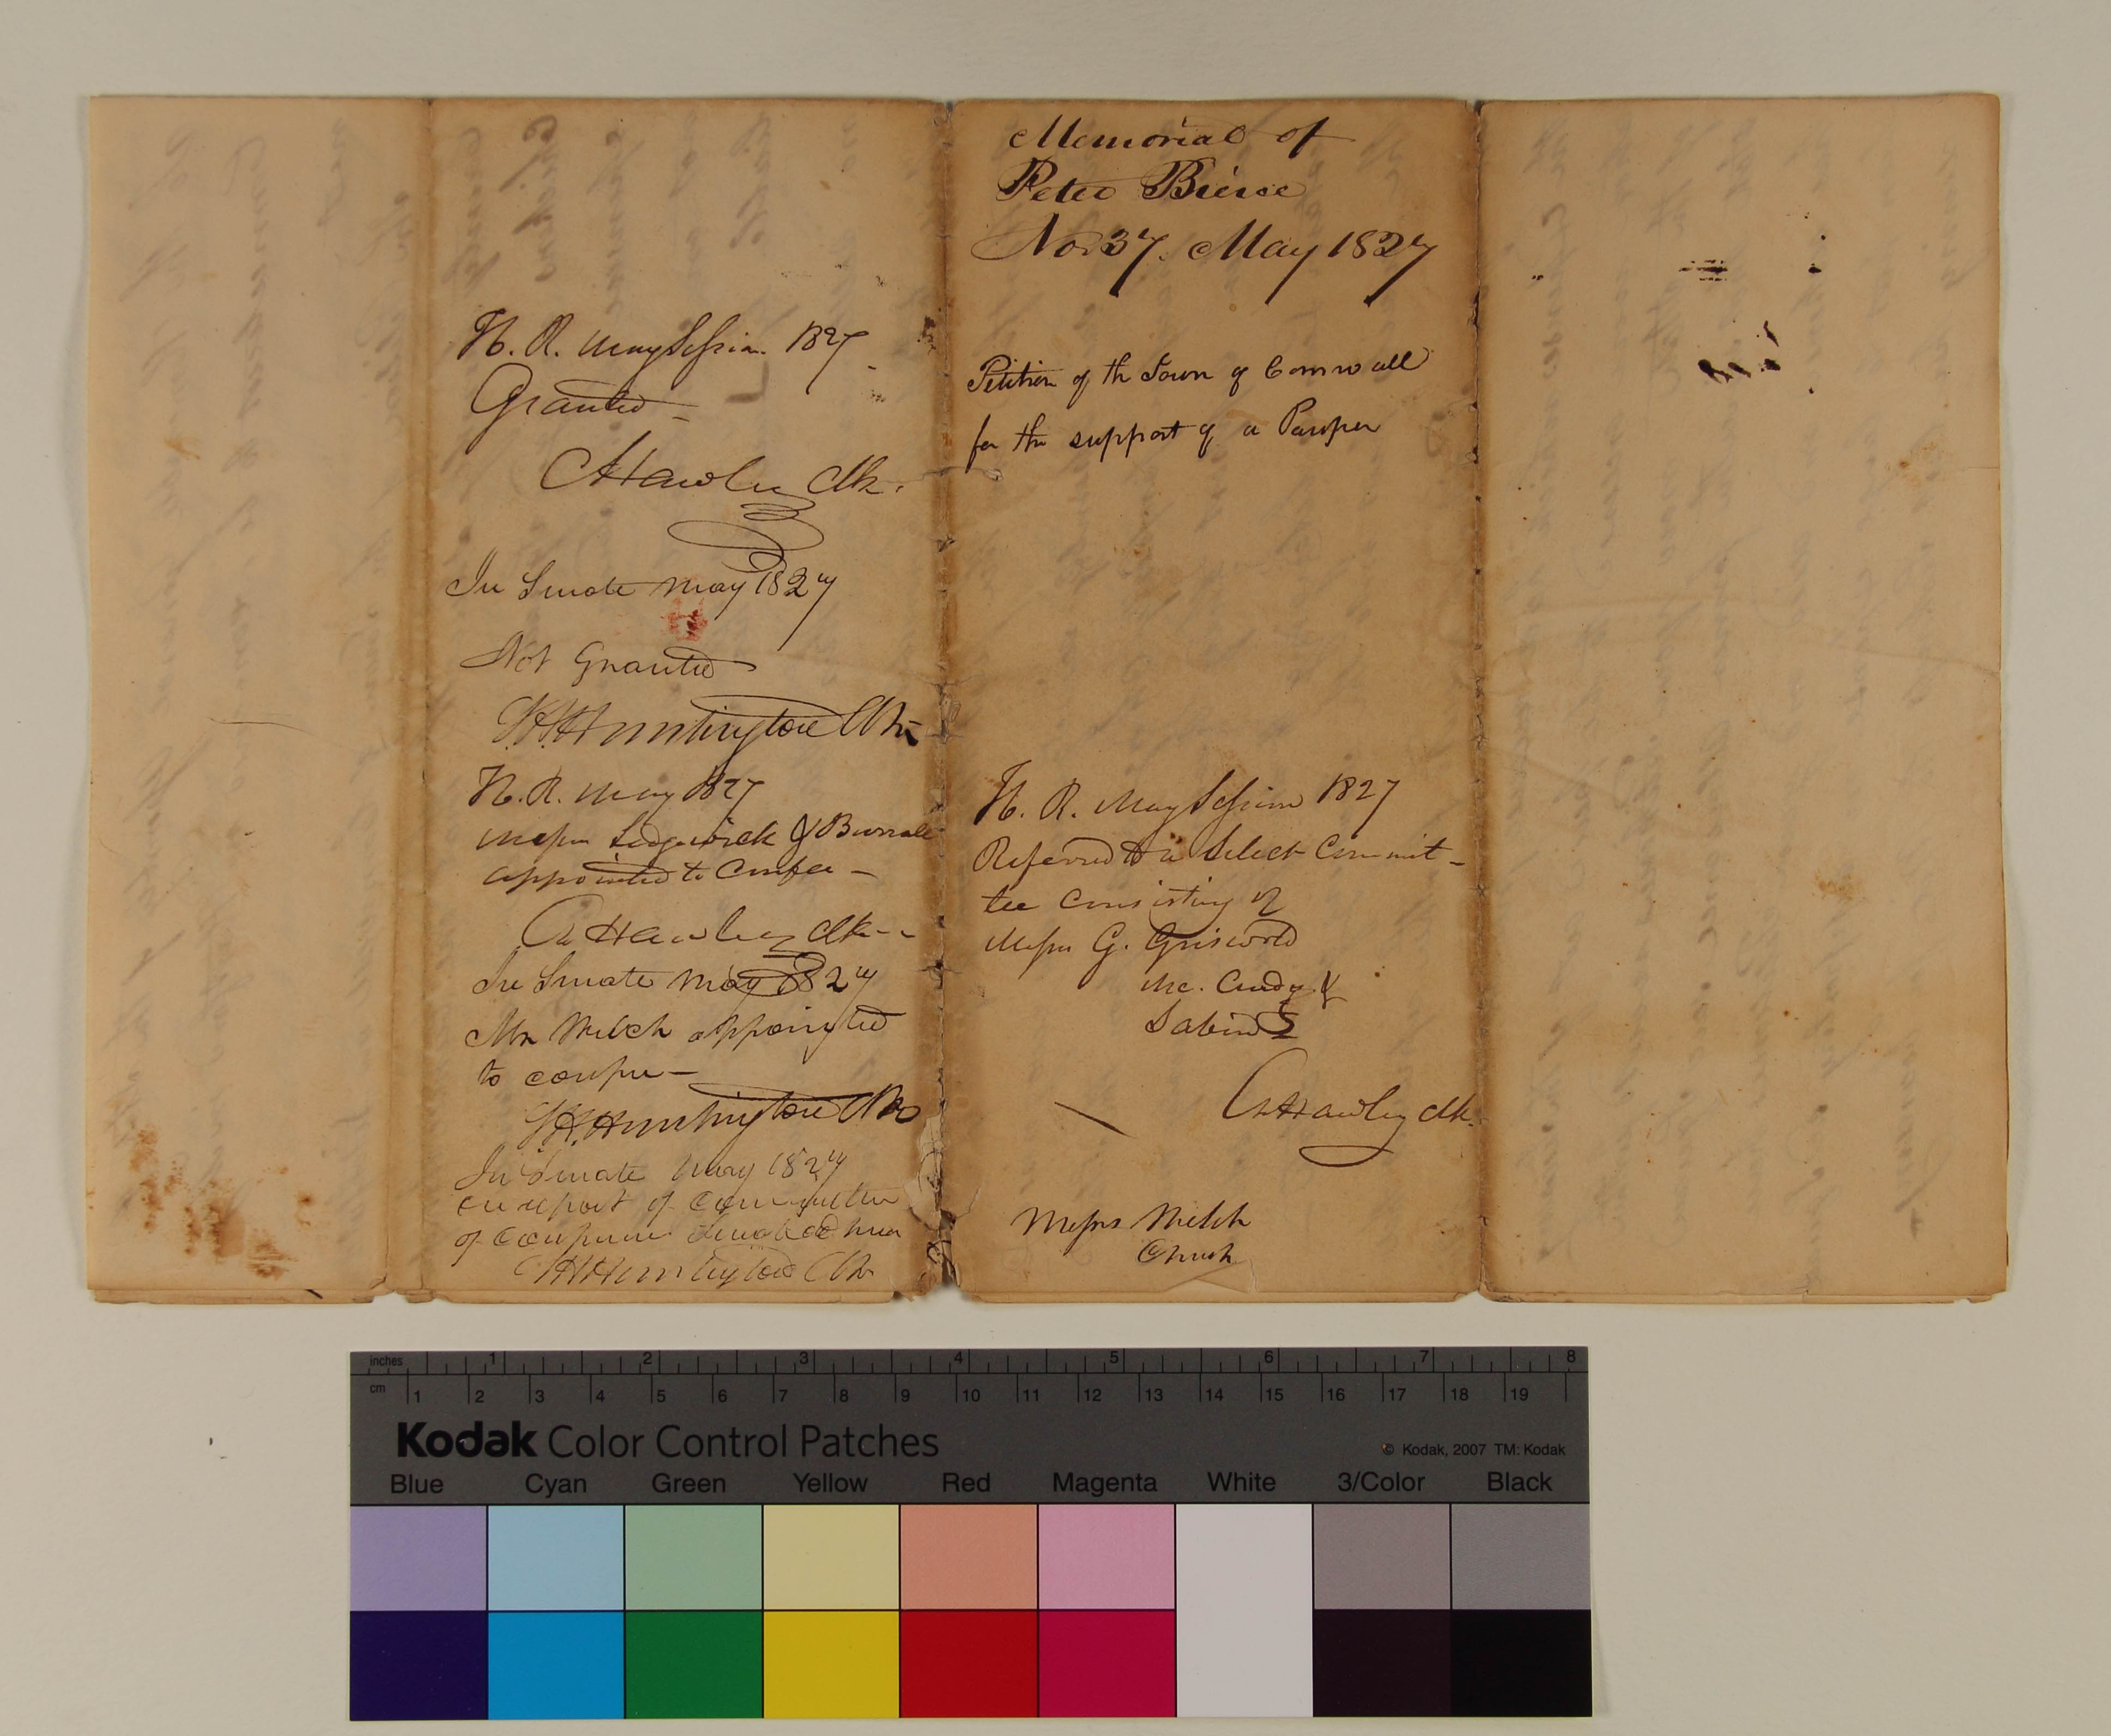 H. R. May Session 1827
Granted
C Hawley Clk.
In Senate May 1827
Not Granted
Huntington Clk
H. R. May 1827
Messrs Sedgwick & Burrall
appointed to Confer
C Hawley Clk
In Senate May 1827
Mr Welch appointed
to confer
Huntington Clk
In Senate May 1827
on report of Committee
of conference Senate
Huntington Clk
Memorial of
Peter Bierce
No. 37. May 1827
Petition of the Town of Cornwall
for the support of a Pauper
H. R. May Session 1827
Referred to a Select Commit-
tee consisting of
Messrs G. Griswold
Mc. Curdy &
Sabin
C Hawley Clk.
Messrs Welch
Church
inches 1 2 3 4 5 6 7 8
cm 1 2 3 4 5 6 7 8 9 10 11 12 13 14 15 16 17 18 19
Kodak Color Control Patches
© Kodak, 2007 TM: Kodak
Blue Cyan Green Yellow Red Magenta White 3/Color Black